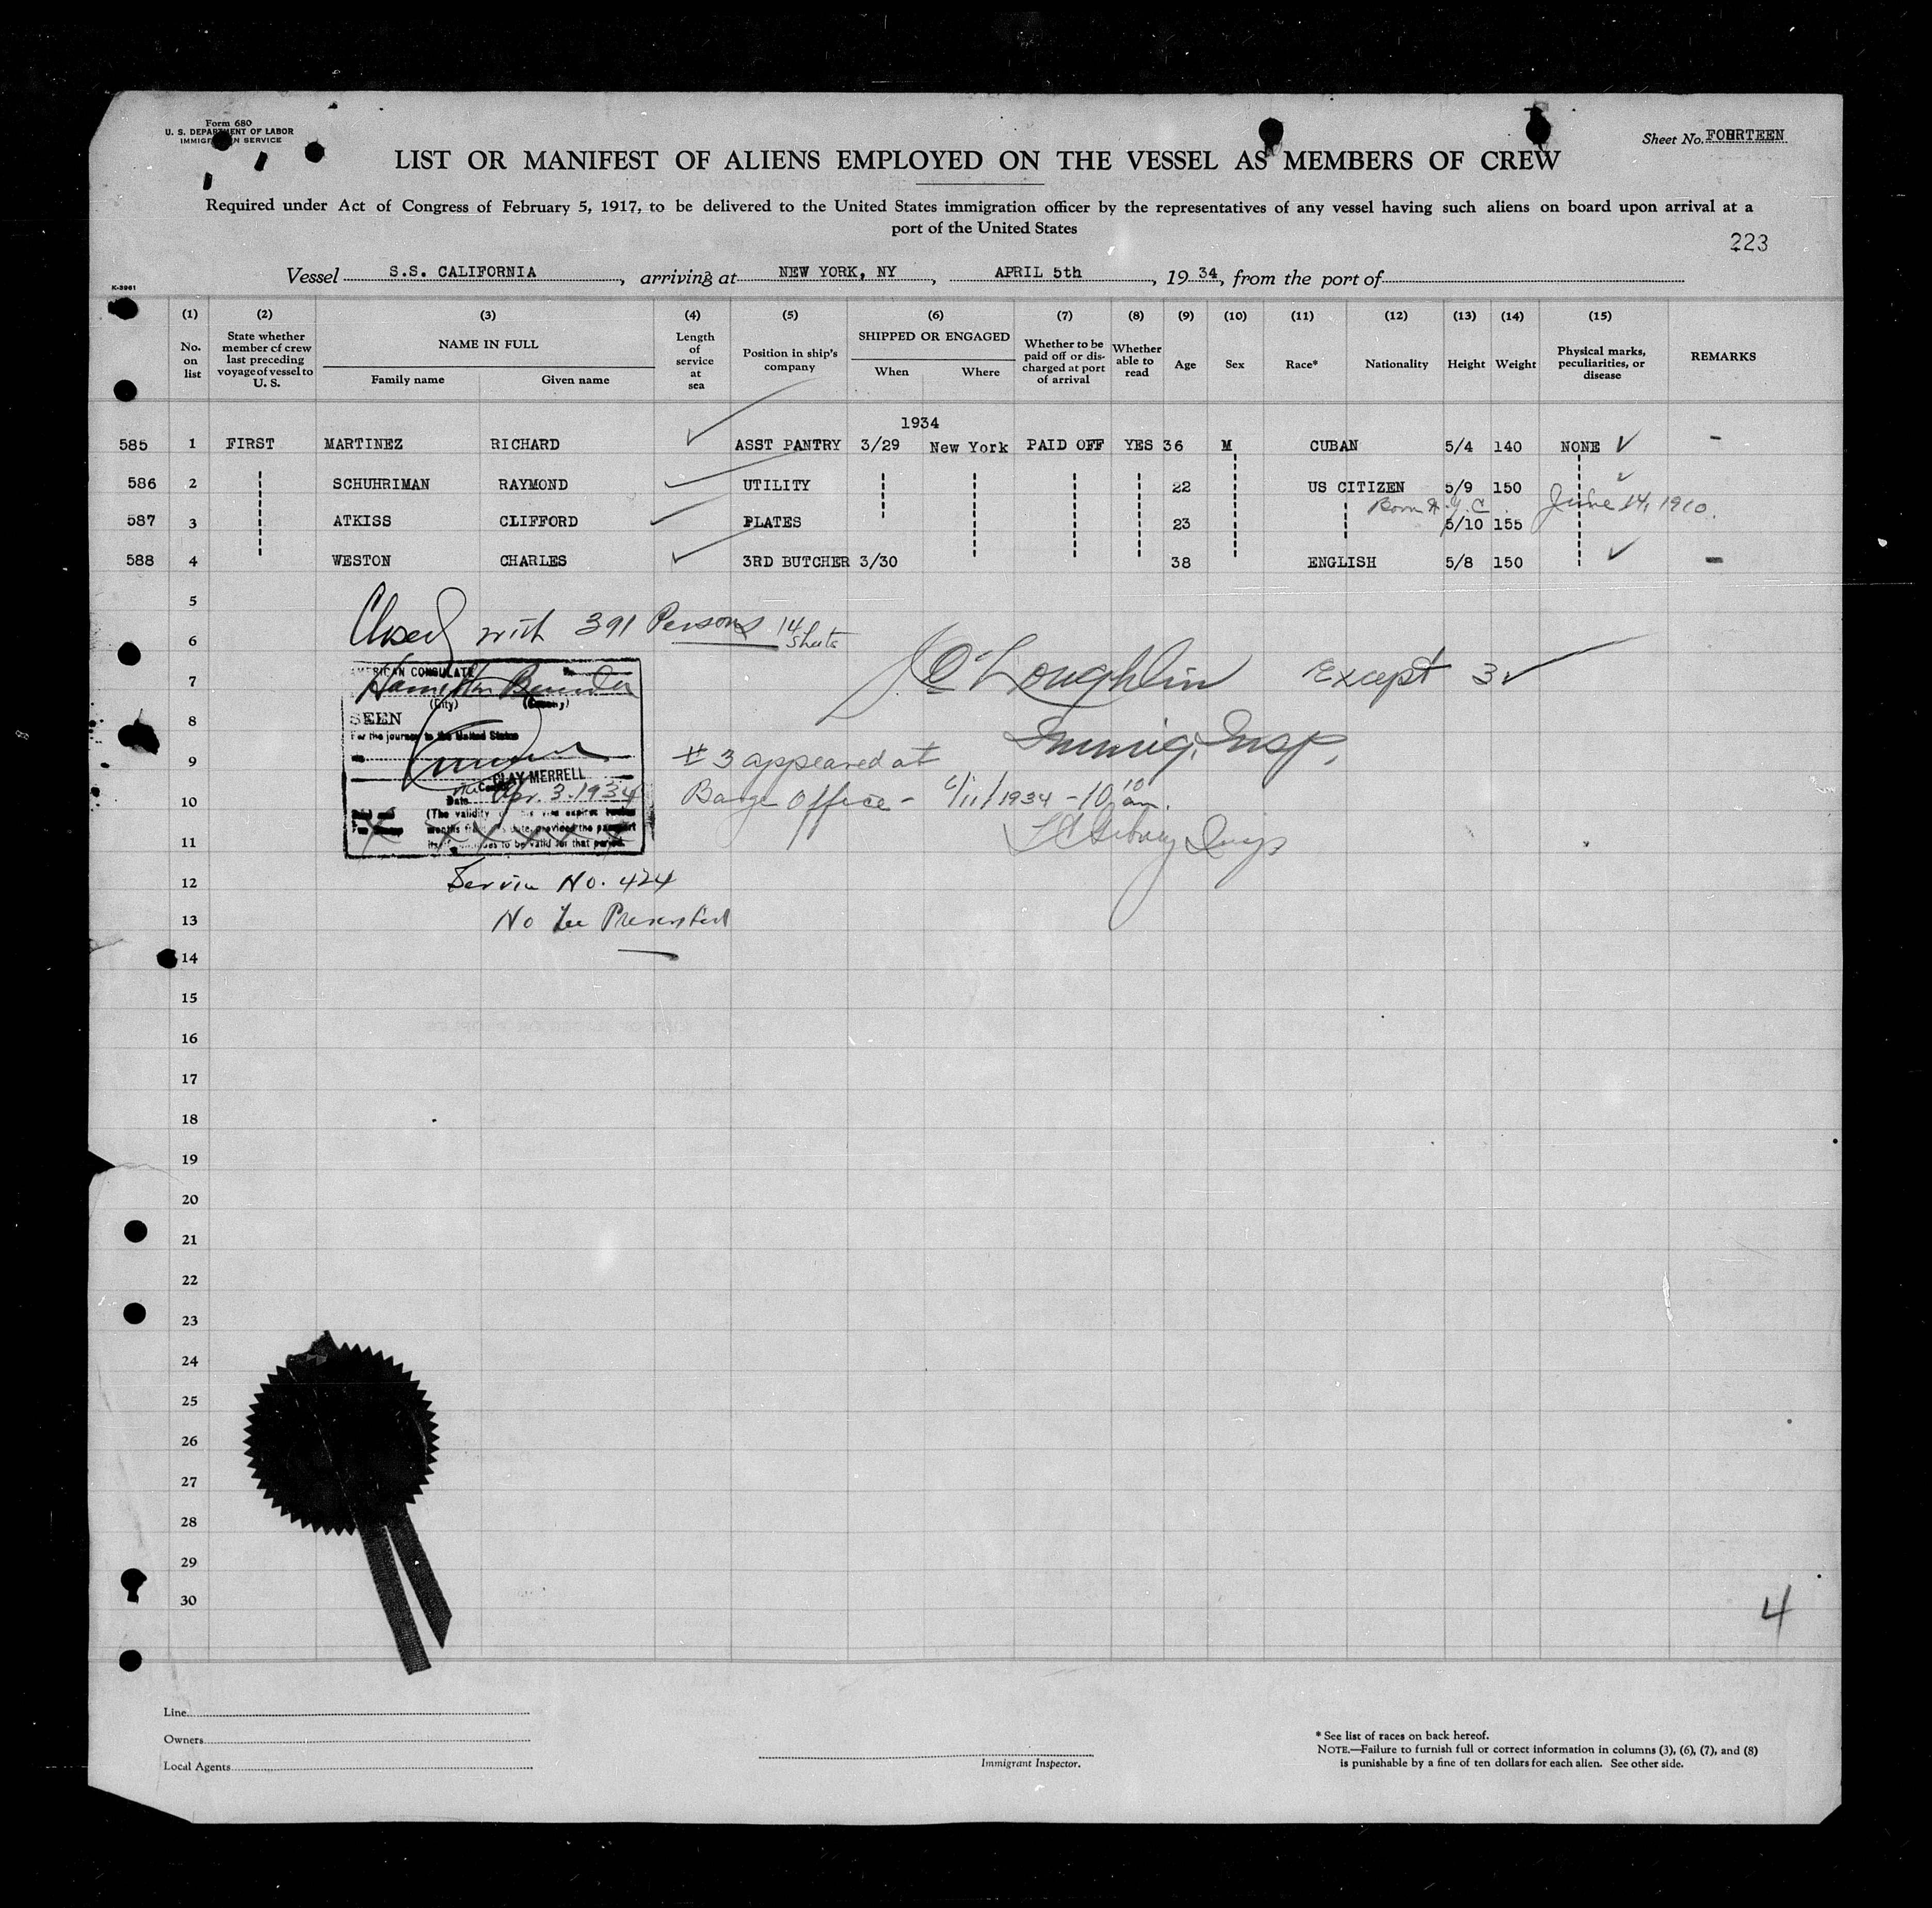 Form 680
U. S. DEPARTMENT OF LABOR
IMMIGRATION SERVICE
Sheet No. FOURTEEN
LIST OR MANIFEST OF ALIENS EMPLOYED ON THE VESSEL AS MEMBERS OF CREW
Required under Act of Congress of February 5, 1917, to be delivered to the United States immigration officer by the representatives of any vessel having such aliens on board upon arrival at a
port of the United States
223
Vessel S.S. CALIFORNIA, arriving at NEW YORK, NY, APRIL 5th, 1934, from the port of
K-3961
(1) (2) (3) (4) (5) (6) (7) (8) (9) (10) (11) (12) (13) (14) (15)
No. on list
State whether member of crew last preceding voyage of vessel to U. S.
NAME IN FULL
Family name Given name
Length of service at sea
Position in ship's company
SHIPPED OR ENGAGED
When Where
Whether to be paid off or discharged at port of arrival
Whether able to read
Age
Sex
Race*
Nationality
Height
Weight
Physical marks, peculiarities, or disease
REMARKS
1934
585 1 FIRST MARTINEZ RICHARD ✓ ASST PANTRY 3/29 New York PAID OFF YES 36 M CUBAN 5/4 140 NONE ✓ -
586 2 SCHUHRIMAN RAYMOND ✓ UTILITY 22 US CITIZEN 5/9 150 ✓
Born N.Y.C. June 14, 1910.
587 3 ATKISS CLIFFORD ✓ PLATES 23 5/10 155
588 4 WESTON CHARLES ✓ 3RD BUTCHER 3/30 38 ENGLISH 5/8 150 ✓ -
5
Closed with 391 Persons 14 Sheets
6
AMERICAN CONSULATE
Hamilton Bermuda
(City) (Country)
7
Except 3 ✓
SEEN
8
For the journey to the United States
Immig. Insp.
9
# 3 appeared at
CLAY MERRELL
Date Apr. 3. 1934
10
Barge Office - 4/11/1934 - 10 10 am.
(The validity of this visa expires twelve
months from this date, provided the passport
itself continues to be valid for that period.
11
12
Service No. 424
13
No fee Presented
14
15
16
17
18
19
20
21
22
23
24
25
26
27
28
29
30
4
Line
Owners
Local Agents
Immigrant Inspector.
* See list of races on back hereof.
NOTE.—Failure to furnish full or correct information in columns (3), (6), (7), and (8)
is punishable by a fine of ten dollars for each alien. See other side.